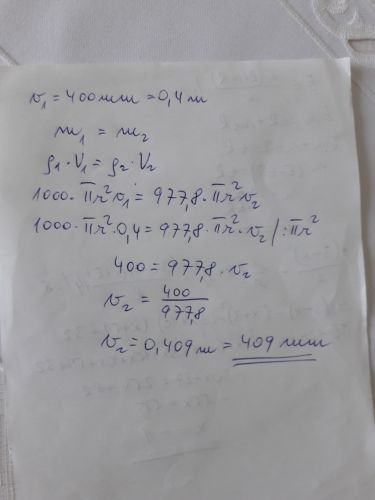 v₁ = 400 mm = 0,4 m
m₁ = m₂
ρ₁·V₁ = ρ₂·V₂
1000·πr²v₁ = 977,8·πr²v₂
1000·πr²·0,4 = 977,8·πr²·v₂ /:πr²
400 = 977,8·v₂
v₂ = 400/977,8
v₂ = 0,409 m = 409 mm